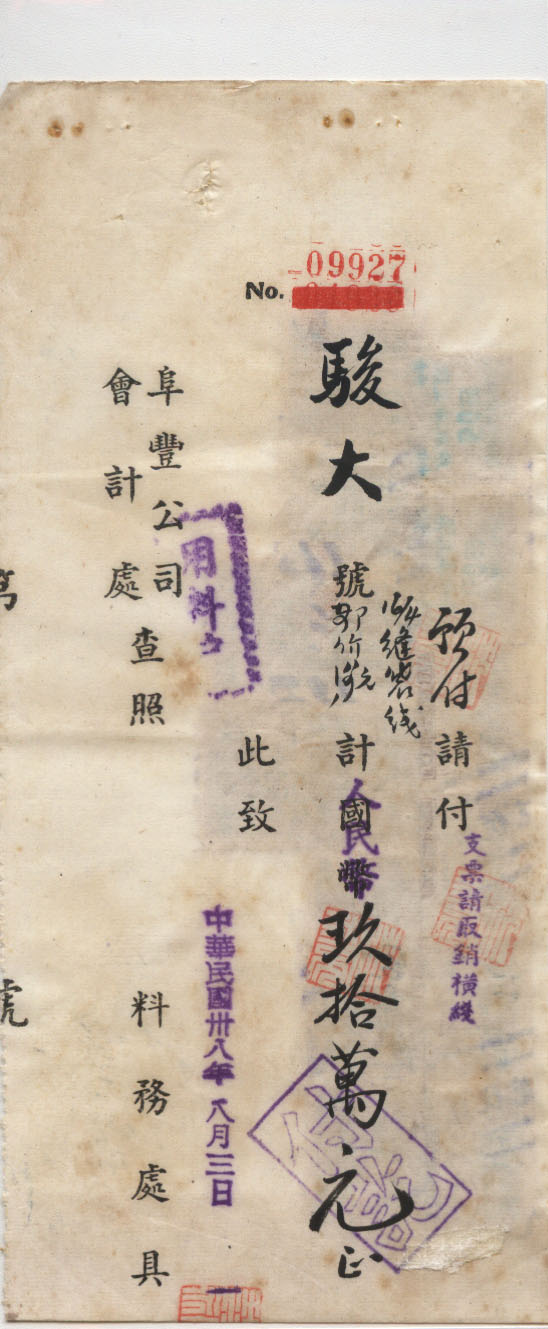 No. 09927
預付請付
支票請取銷橫綫
縫袋线
駿大號
計國幣玖拾萬元正
人民幣
此致
阜豐公司
會計處查照
用料
中華民國卅八年八月三日
料務處具
付訖
號